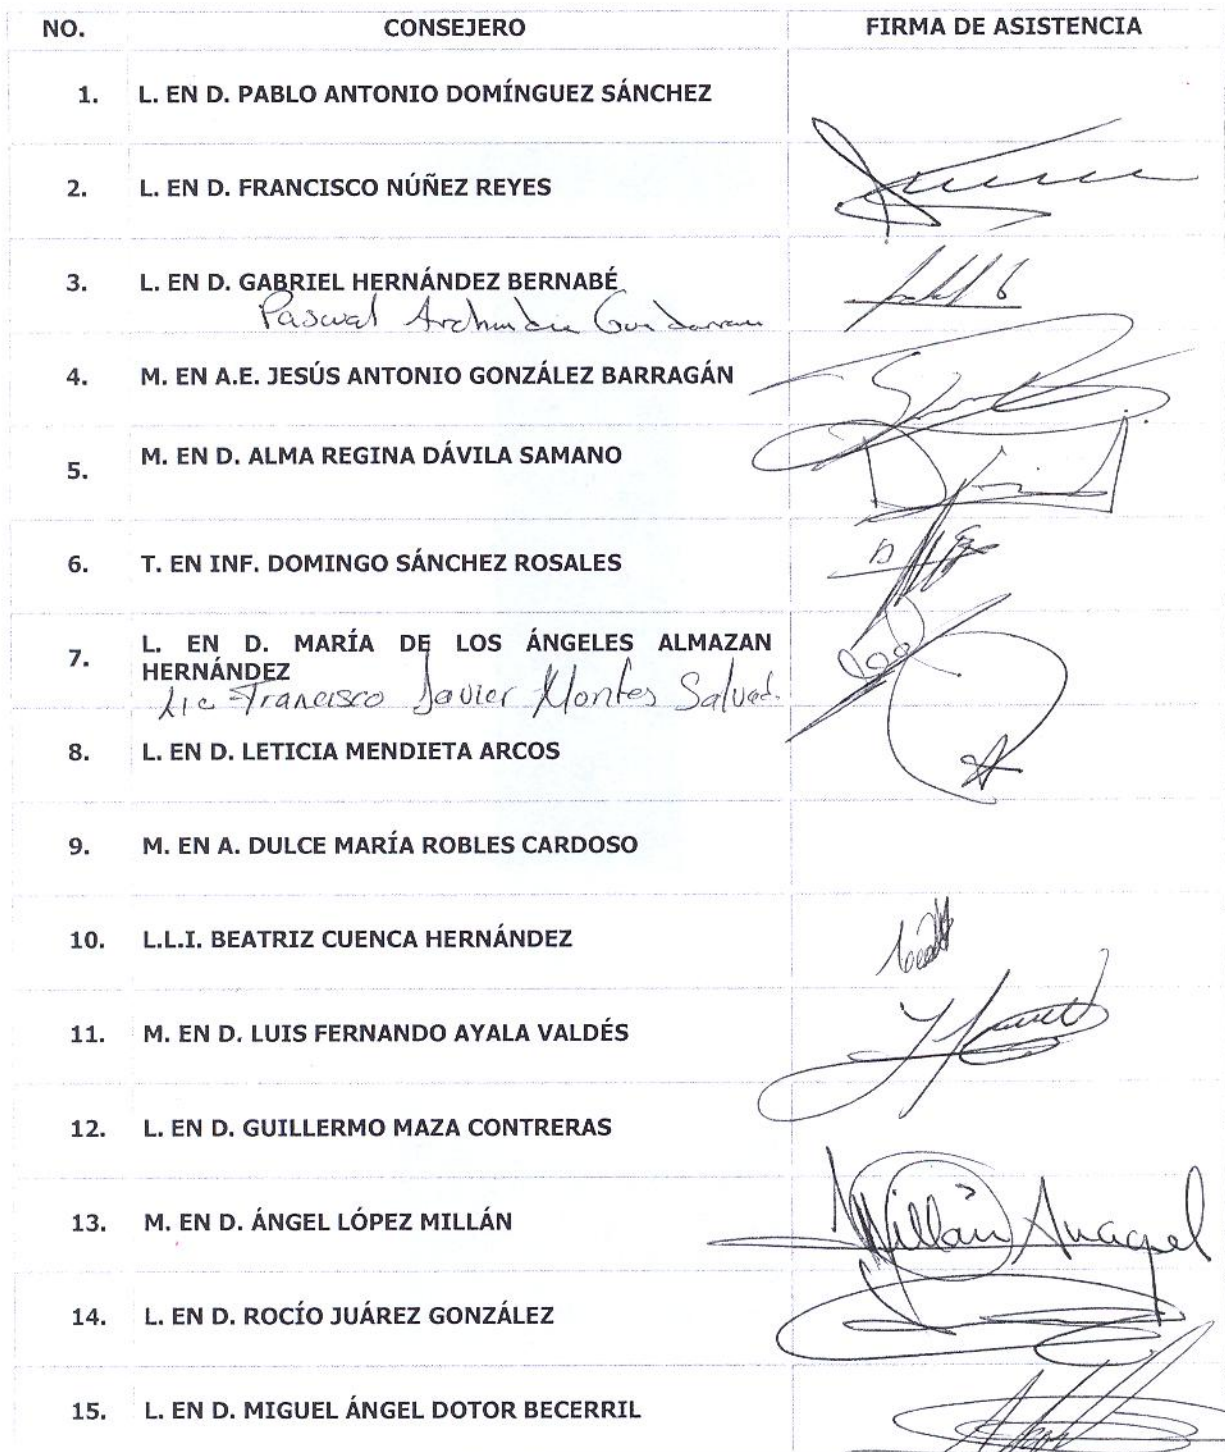 NO. CONSEJERO FIRMA DE ASISTENCIA
1. L. EN D. PABLO ANTONIO DOMÍNGUEZ SÁNCHEZ
2. L. EN D. FRANCISCO NÚÑEZ REYES
3. L. EN D. GABRIEL HERNÁNDEZ BERNABÉ
Pascual
4. M. EN A.E. JESÚS ANTONIO GONZÁLEZ BARRAGÁN
5. M. EN D. ALMA REGINA DÁVILA SAMANO
6. T. EN INF. DOMINGO SÁNCHEZ ROSALES
7. L. EN D. MARÍA DE LOS ÁNGELES ALMAZAN
HERNÁNDEZ
Lic Francisco Javier Montes
8. L. EN D. LETICIA MENDIETA ARCOS
9. M. EN A. DULCE MARÍA ROBLES CARDOSO
10. L.L.I. BEATRIZ CUENCA HERNÁNDEZ
11. M. EN D. LUIS FERNANDO AYALA VALDÉS
12. L. EN D. GUILLERMO MAZA CONTRERAS
13. M. EN D. ÁNGEL LÓPEZ MILLÁN Millán
14. L. EN D. ROCÍO JUÁREZ GONZÁLEZ
15. L. EN D. MIGUEL ÁNGEL DOTOR BECERRIL